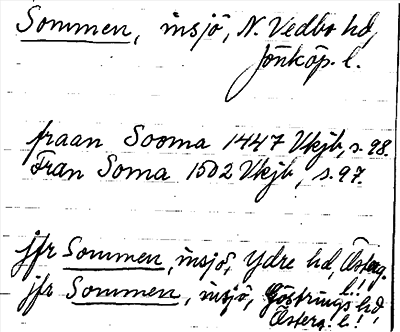 Sommen, insjö, N. Vedbo hd,
Jönköp. l.
fraan Sooma 1447 Vkjb, s. 98.
Fran Soma 1502 Vkjb, s. 97.
jfr Sommen, insjö, Ydre hd, Österg. l.!
jfr Sommen, insjö, Göstrings hd,
Österg. l.!